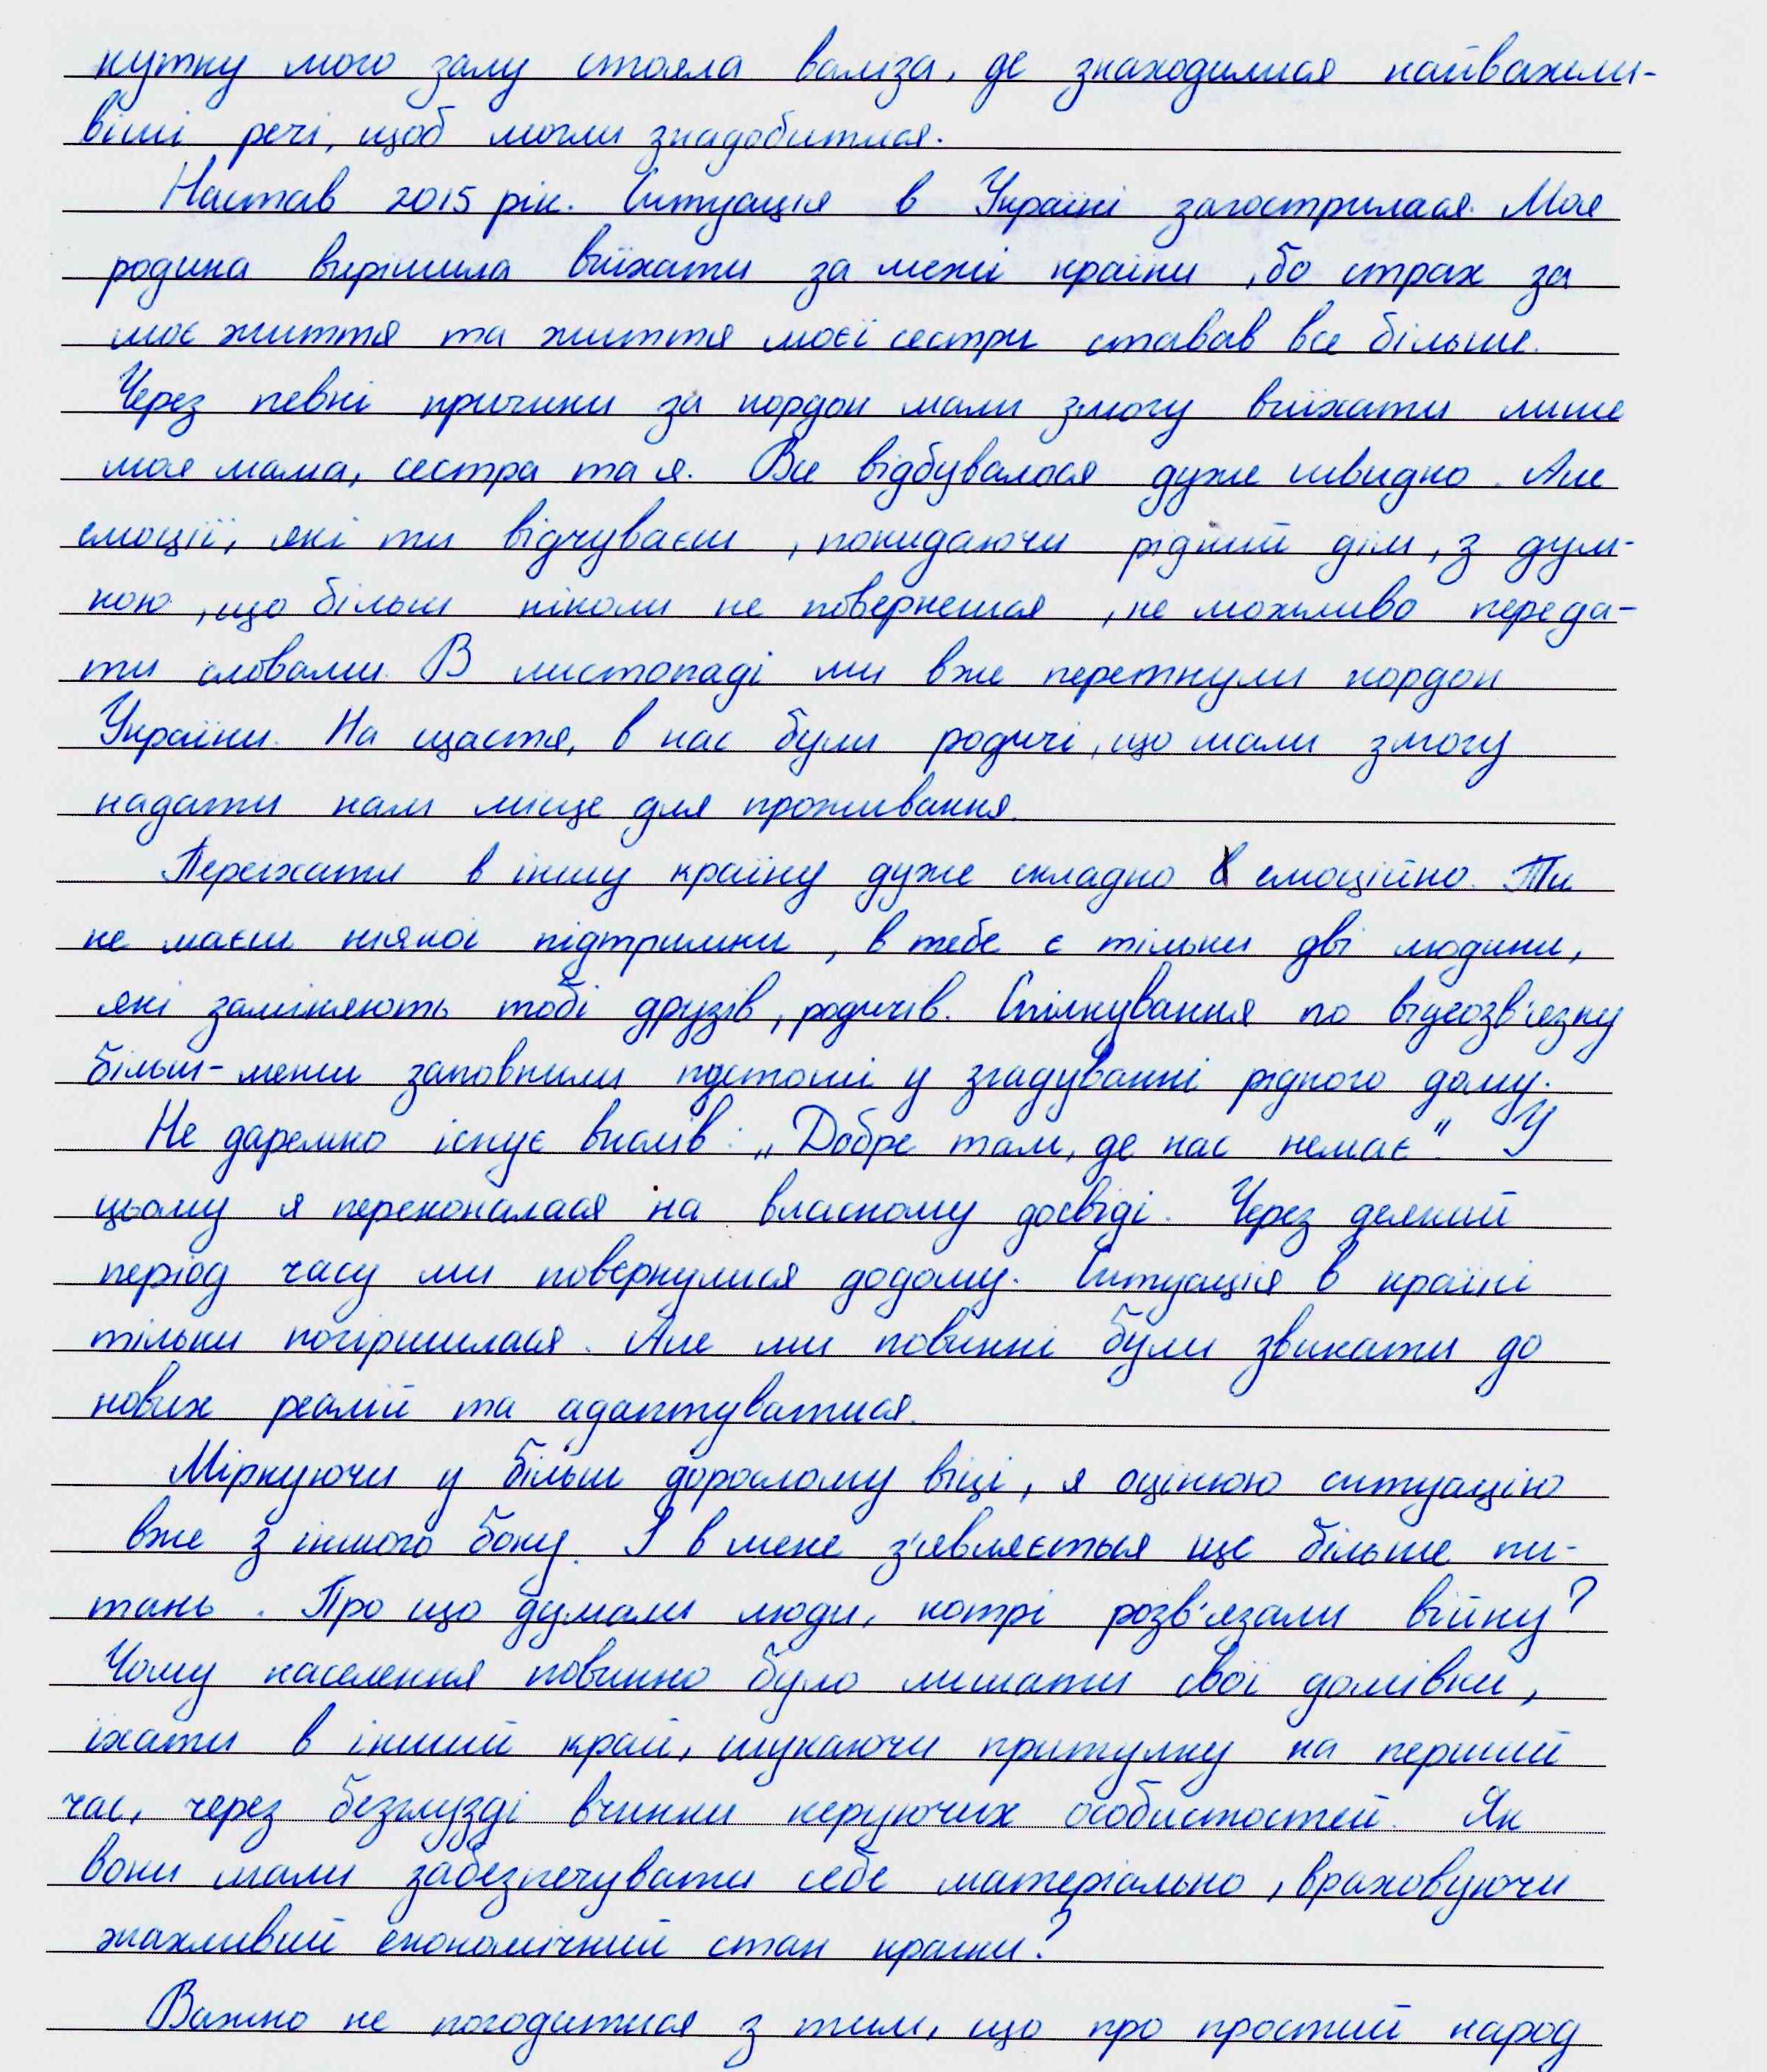 кутку мого залу стояла валіза, де знаходилися найважли-
віші речі, щоб могли знадобитися.
Настав 2015 рік. Ситуація в Україні загострилася. Моя
родина вирішила виїхати за межі країни, бо страх за
моє життя та життя моєї сестри ставав все більше.
Через певні причини за кордон мали змогу виїхати лише
моя мама, сестра та я. Все відбувалося дуже швидко. Але
емоції, які ти відчуваєш, покидаючи рідний дім, з дум-
кою, що більш ніколи не повернешся, не можливо переда-
ти словами. В листопаді ми вже перетнули кордон
України. На щастя, в нас були родичі, що мали змогу
надати нам місце для проживання.
Переїхати в іншу країну дуже складно емоційно. Ти
не маєш ніякої підтримки, в тебе є тільки дві людини,
які заміняють тобі друзів, родичів. Спілкування по відеозв'язку
більш-менш заповнили пустоші у згадуванні рідного дому.
Не даремно існує вислів: „Добре там, де нас немає". У
цьому я переконалася на власному досвіді. Через деякий
період часу ми повернулися додому. Ситуація в країні
тільки погіршилася. Але ми повинні були звикати до
нових реалій та адаптуватися.
Міркуючи у більш дорослому віці, я оцінюю ситуацію
вже з іншого боку. І в мене з'являється ще більше пи-
тань. Про що думали люди, котрі розв'язали війну?
Чому населення повинно було лишати свої домівки,
їхати в інший край, шукаючи притулку на перший
час, через безглузді вчинки керуючих особистостей. Як
вони мали забезпечувати себе матеріально, враховуючи
жахливий економічний стан країни?
Важко не погодитися з тим, що про простий народ